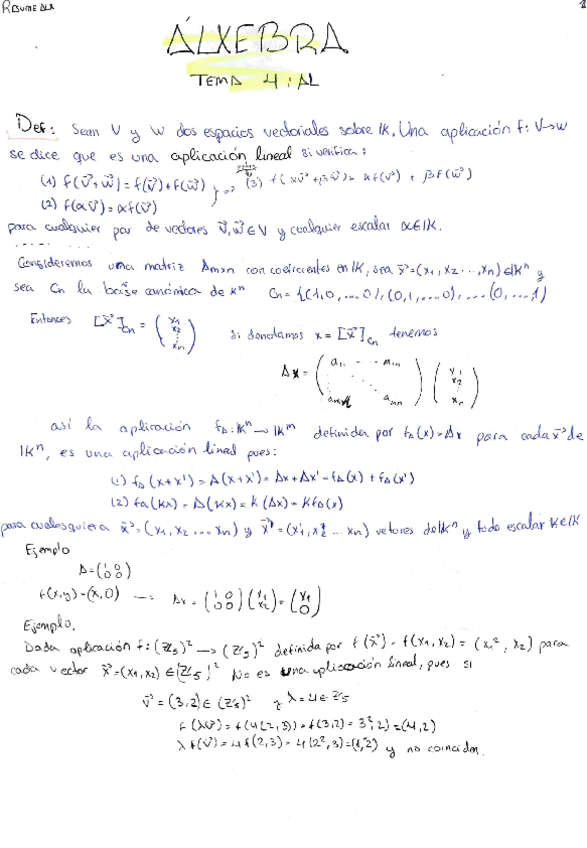 RESUME ALX
1
ÁLXEBRA
TEMA 4: AL
Def: Sean V y W dos espacios vectoriales sobre IK. Una aplicación f: V→W
se dice que es una aplicación lineal si verifica:
(1) f(v⃗+w⃗) = f(v⃗)+f(w⃗)
(3) f(αv⃗+βw⃗) = αf(v⃗) + βf(w⃗)
(2) f(αv⃗) = αf(v⃗)
para cualquier par de vectores v⃗,w⃗∈V y cualquier escalar α∈IK.
Consideremos una matriz Amxn con coeficientes en IK, sea x⃗=(x1, x2 ..., xn)∈IK^n y
sea Cn la base canónica de K^n Cn = {(1,0,...0), (0,1,...0), ... (0,...,1)
Entonces [x⃗]Cn = (x1 x2 ⋮ xn) si denotamos x = [x⃗]Cn tenemos
Ax = (a11 ... a1n ... amn) (x1 x2 ⋮ xn)
así la aplicación fA: IK^n → IK^m definida por fA(x) = Ax para cada x⃗ de
IK^n, es una aplicación lineal pues:
(1) fA(x+x') = A(x+x') = Ax+Ax' = fA(x) + fA(x')
(2) fA(Kx) = A(Kx) = K(Ax) = KfA(x)
para cualesquiera x⃗=(x1, x2 ... xn) y x⃗'=(x'1, x'2 ... xn) vetores de IK^n y todo escalar K∈IK
Ejemplo
A = (1 0 0 0)
f(x,y) = (x,0) → Ax = (1 0 0 0) (x1 x2) = (x1 0)
Ejemplo.
Dada aplicación f: (Z5)² → (Z5)² definida por f(x⃗) = f(x1, x2) = (x1², x2) para
cada vector x⃗=(x1, x2) ∈ (Z5)² No es una aplicación lineal, pues si
v⃗ = (3,2) ∈ (Z5)² y λ = 4 ∈ Z5
f(λv⃗) = f(4(2,3)) = f(3,2) = 3², 2) = (4,2)
λf(v⃗) = 4f(2,3) = 4(2², 3) = (1,2) y no coinciden.